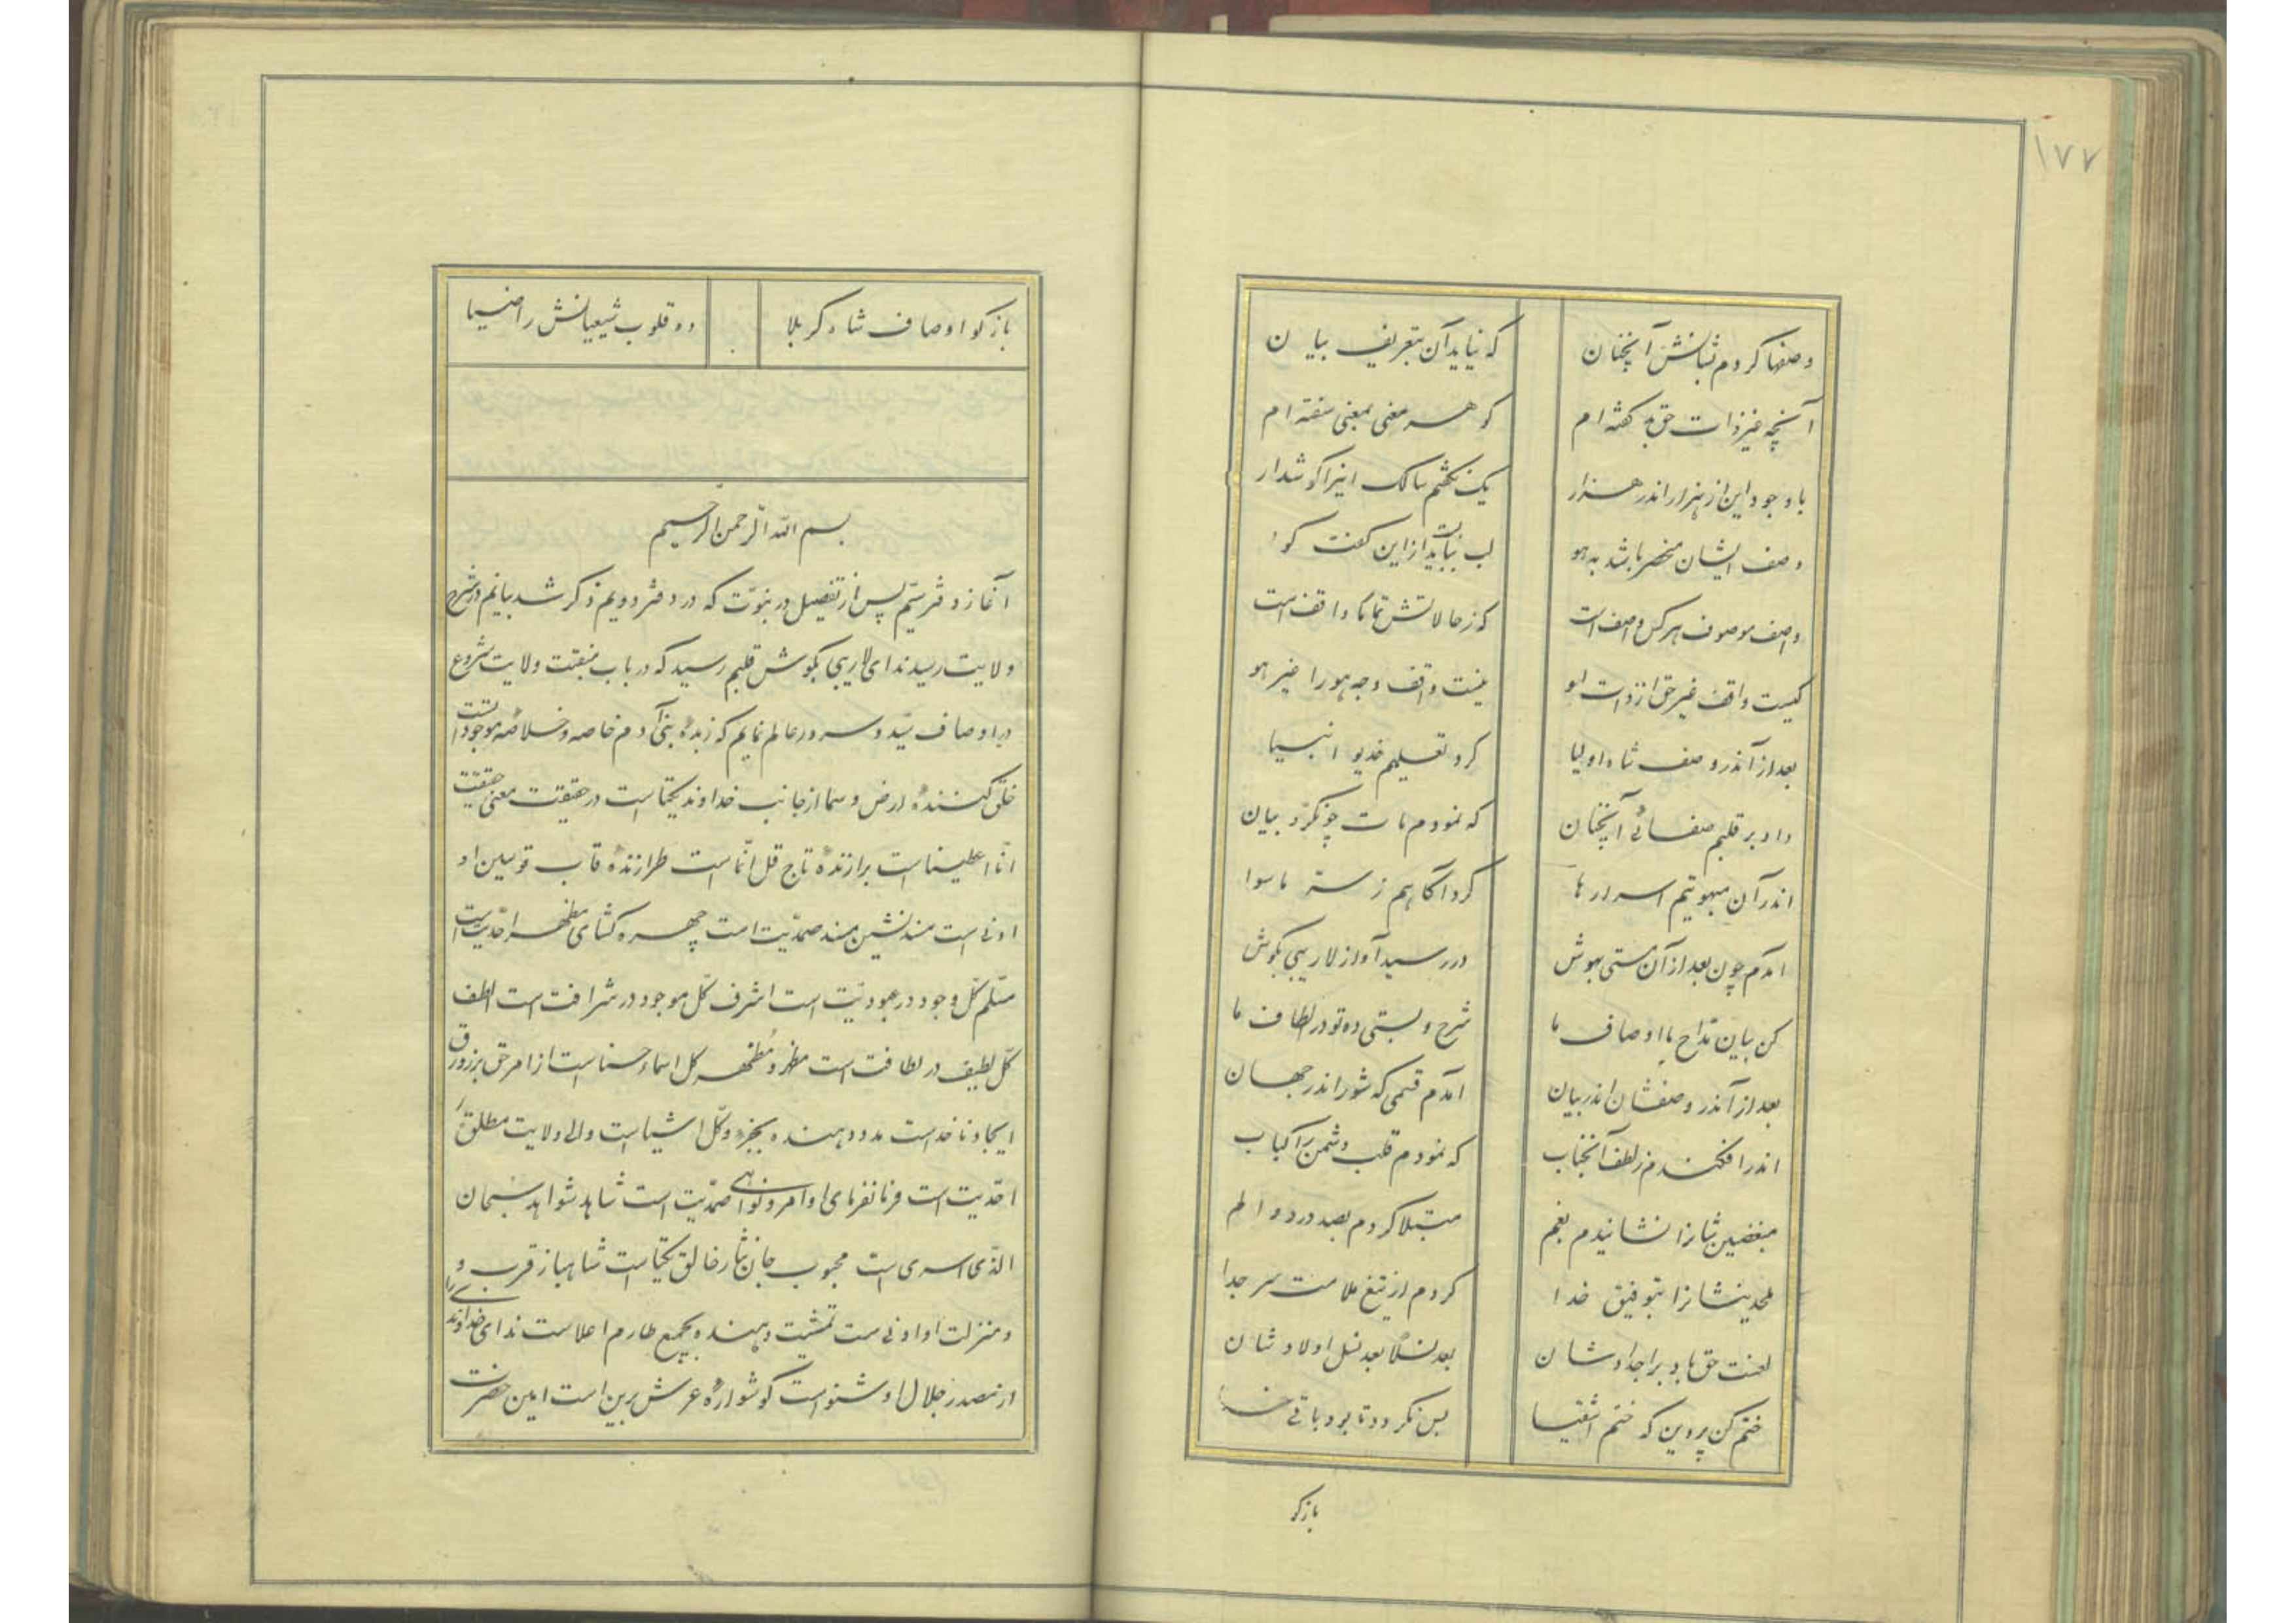 ۱۷۷
وصفها کردم ثباتش آنچنان که نیاید آن بتعریف بیان
آنچه غیر ذات حق بد گفته‌ام گوهر معنی بمعنی سفته‌ام
با وجود این از هزار اندر هزار یک نگفتم سالک اینرا گوشدار
وصف ایشان منحصر باشد به هو لب بباید بست از این گفت گو
واصف موصوف هر کس واصف است که ز حالاتش تماما واقف است
کیست واقف غیر حق از ذات او نیست واقف وجه هو را غیر هو
بعد از آن در وصف شاه اولیا کرد تعلیمم خدیو انبیا
داد بر قلبم صفائی آنچنان که نمودم مات چون کرد بیان
اندر آن مبهوتیم اسرارها کرد آگاهم ز سر ماسوا
آمدم چون بعد از آن مستی بهوش در رسید آواز لاریبی بگوش
کن بیان مداح ما اوصاف ما شرح و بسطی ده تو در الطاف ما
بعد از آن در وصفشان اندر بیان آمدم قسمی که شور اندر جهان
اندر افکندم ز لطف آنجناب که نمودم قلب دشمن را کباب
مبغضین شانرا نشانیدم بغم مبتلا کردم بصد درد و الم
ملحدینشانرا بتوفیق خدا کردم از تیغ ملامت سر جدا
لعنت حق باد بر اجدادشان بعد نسلا بعد نسل اولادشان
ختم کن پروین که ختم اشقیا بس نگردد تا بود باقی
بازگو
بازگو اوصاف شاه کربلا ده قلوب شیعیانش را ضیا
بسم الله الرحمن الرحیم
آغاز دفتر سیم پس از تفصیل در نبوت که در دفتر دویم ذکر شد بیانم در شرح
ولایت رسید ندای لاریبی بگوش قلبم رسید که در باب منقبت ولایت شروع
در اوصاف سید و سرور عالم نمایم که زبدهٔ بنی آدم خاصه و خلاصهٔ موجودات است
خلق کنندهٔ ارض و سما از جانب خداوند یکتاست در حقیقت معنی حقیقت
انا علیناست برازندهٔ تاج قل انما است طرازندهٔ قاب قوسین او
ادنی است مسند نشین مسند صمدیت است چهره گشای مظهر احدیت است
مسلم کل وجود در عبودیت است اشرف کل موجود در شرافت است الطف
کل لطیف در لطافت است مظهر و مظهر کل اسماء حسنا است از امر حق بزورق
ایجاد ناخداست مدد دهنده بجزء و کل اشیاست والی ولایت مطلقهٔ
احدیت است فرمانفرمای اوامر و نواهی صمدیت است شاهد شواهد سبحان
الذی اسری است محبوب جان نثار خالق یکتاست شاهباز قرب و
و منزلت او ادنی ست تمشیت دهنده بجمیع طارم اعلاست ندای خداوندی را
از مصدر جلال او شنواست گوشوارهٔ عرش برین است امین حضرت